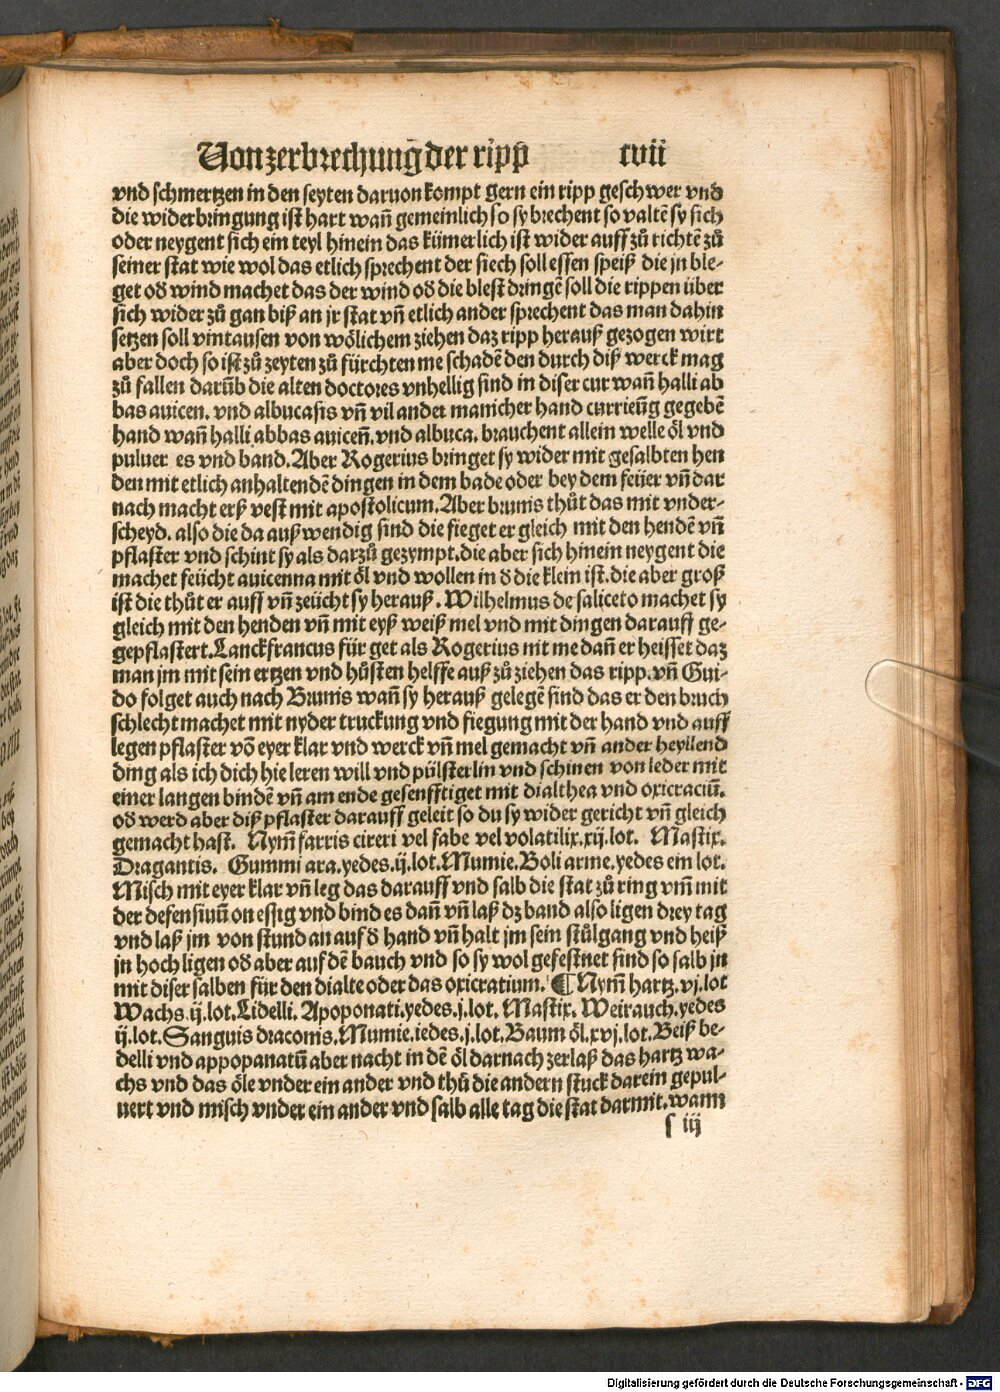 Von zerbrechung der ripp cvii
vnd schmertzen in den seyten daruon kompt gern ein ripp geschwer vnd
die widerbringung ist hart wañ gemeinlich so sy brechent so valtē sy sich
oder neygent sich ein teyl hinein das kümerlich ist wider auff zů richtē zů
seiner stat wie wol das etlich sprechent der siech soll essen speiß die jn ble-
get od wind machet das der wind od die blest dringē soll die rippen über
sich wider zů gan biß an jr stat vñ etlich ander sprechent das man dahin
setzen soll vintausen von wölichem ziehen daz ripp herauß gezogen wirt
aber doch so ist zů zeyten zů fürchten me schadē den durch diß werck mag
zů fallen darūb die alten doctores vnhellig sind in diser cur wañ halli ab
bas auicen. vnd albucasis vñ vil ander manicher hand currieūg gegebē
hand wañ halli abbas auiceñ. vnd albuca. brauchent allein welle öl vnd
puluer es vnd band. Aber Rogerius bringet sy wider mit gesalbten hen
den mit etlich anhaltendē dingen in dem bade oder bey dem feüer vñ dar
nach macht erß vest mit apostolicum. Aber brunis thůt das mit vnder-
scheyd. also die da außwendig sind die fieget er gleich mit den hendē vñ
pflaster vnd schint sy als darzů gezympt. die aber sich hinein neygent die
machet feücht auicenna mit öl vnd wollen in d die klein ist. die aber groß
ist die thůt er auff vñ zeücht sy herauß. Wilhelmus de saliceto machet sy
gleich mit den henden vñ mit eyß weiß mel vnd mit dingen darauff ge-
gepflastert. Lanckfrancus für get als Rogerius nit me dañ er heisset daz
man jm mit sein ertzen vnd hůsten helffe auß zů ziehen das ripp. vñ Gui-
do folget auch nach Brunis wañ sy herauß gelegē sind das er den bruch
schlecht machet mit nyder truckung vnd fiegung mit der hand vnd auff
legen pflaster vō eyer klar vnd werck vñ mel gemacht vñ ander heyllend
ding als ich dich hie leren will vnd pülsterlin vnd schinen von leder mit
einer langen bindē vñ am ende gesenfftiget mit dialthea vnd oxicraciū.
od werd aber diß pflaster darauff geleit so du sy wider gericht vñ gleich
gemacht hast. Nym̄ farris cireri vel fabe vel volatilix. xij. lot. Mastix.
Dragantis. Gummi ara. yedes. ij. lot. Mumie. Boli arme. yedes ein lot.
Misch mit eyer klar vñ leg das darauff vnd salb die stat zů ring vm̄ mit
der defensiuū on essig vnd bind es dañ vñ laß dz band also ligen drey tag
vnd laß jm von stund an auf d hand vñ halt jm sein stůlgang vnd heiß
jn hoch ligen od aber auf dē bauch vnd so sy wol gefestnet sind so salb jn
mit diser salben für den dialte oder das oxicratium. ¶ Nym̄ hartz. vj. lot
Wachs. ij. lot. Lidelli. Apoponati. yedes. j. lot. Mastix. Weirauch. yedes
ij. lot. Sanguis draconis. Mumie. iedes. j. lot. Baum öl. xvj. lot. Beiß be-
delli vnd appopanatū aber nacht in dē öl darnach zerlaß das hartz wa-
chs vnd das öle vnder ein ander vnd thů die andern stuck darein gepul-
uert vnd misch vnder ein ander vnd salb alle tag die stat darmit. wann
s iij
Digitalisierung gefördert durch die Deutsche Forschungsgemeinschaft - DFG